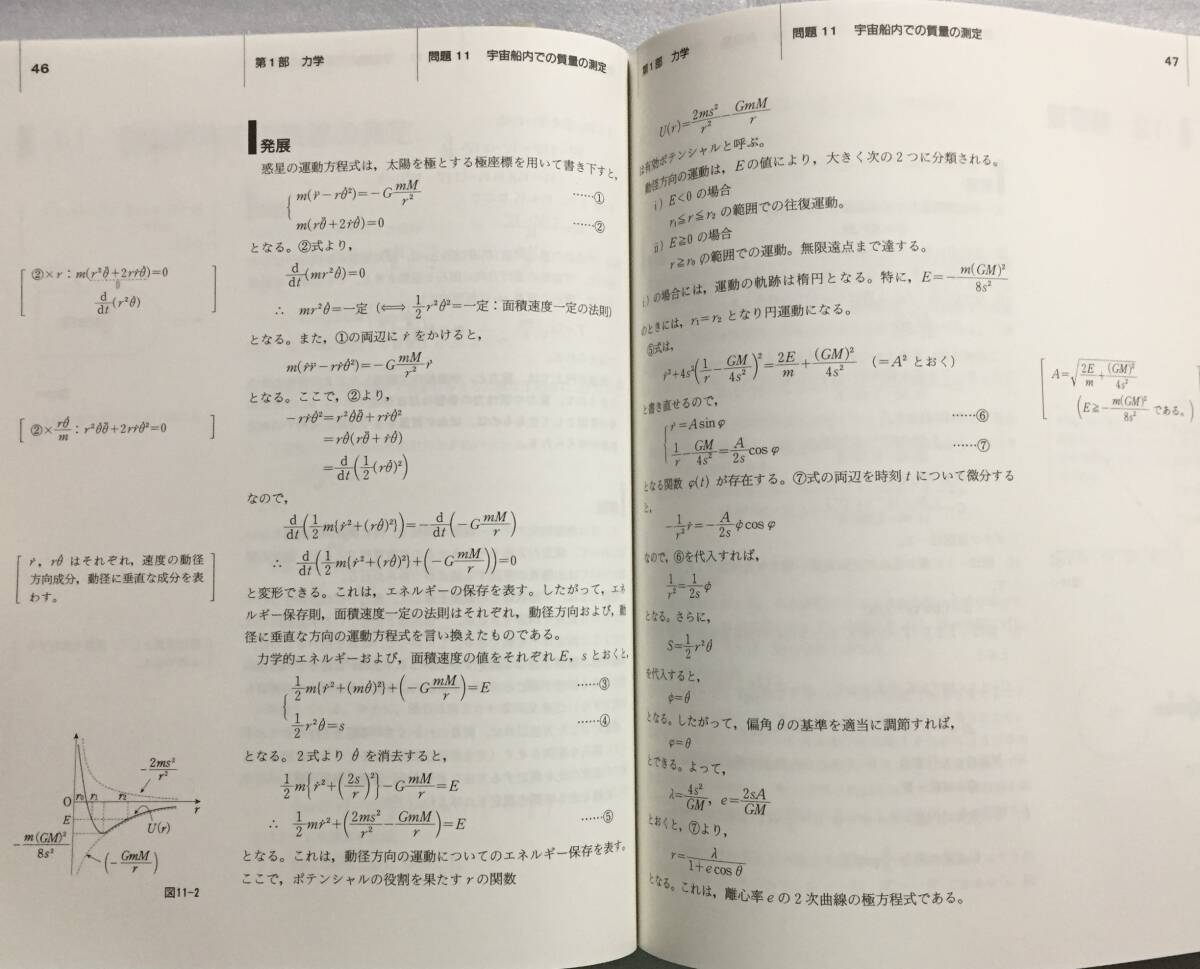 46
第1部 力学
問題11 宇宙船内での質量の測定
発展
惑星の運動方程式は,太陽を極とする極座標を用いて書き下すと,
m(r̈−rθ̇²)=−G mM/r² ……①
m(rθ̈+2ṙθ̇)=0 ……②
となる。②式より,
②×r:m(r²θ̈+2rṙθ̇)=0
d/dt(r²θ̇)
d/dt(mr²θ̇)=0
∴ mr²θ̇=一定 (⟺ 1/2 r²θ̇²=一定:面積速度一定の法則)
となる。また,①の両辺に ṙ をかけると,
m(ṙr̈−rṙθ̇²)=−G mM/r² ṙ
となる。ここで,②より,
②×rθ̇/m:r²θ̇θ̈+2rṙθ̇²=0
−rṙθ̇²=r²θ̇θ̈+rṙθ̇²
=rθ̇(rθ̈+ṙθ̇)
=d/dt(1/2(rθ̇)²)
なので,
d/dt(1/2 m{ṙ²+(rθ̇)²})=−d/dt(−G mM/r)
∴ d/dt(1/2 m{ṙ²+(rθ̇)²}+(−G mM/r))=0
ṙ,rθ̇ はそれぞれ,速度の動径
方向成分,動径に垂直な成分を表
わす。
と変形できる。これは,エネルギーの保存を表す。したがって,エネ
ルギー保存則,面積速度一定の法則はそれぞれ,動径方向および,動
径に垂直な方向の運動方程式を言い換えたものである。
力学的エネルギーおよび,面積速度の値をそれぞれE,sとおくと,
1/2 m{ṙ²+(mθ̇)²}+(−G mM/r)=E ……③
1/2 r²θ̇=s ……④
となる。2式より θ̇ を消去すると,
1/2 m{ṙ²+(2s/r)²}−G mM/r=E
∴ 1/2 mṙ²+(2ms²/r²−GmM/r)=E ……⑤
となる。これは,動径方向の運動についてのエネルギー保存を表す。
ここで,ポテンシャルの役割を果たすrの関数
2ms²/r²
O r₀ r₁ r₂ r
E
U(r)
−m(GM)²/8s²
(−GmM/r)
図11-2
第1部 力学
問題11 宇宙船内での質量の測定
47
U(r)=2ms²/r²−GmM/r
は有効ポテンシャルと呼ぶ。
動径方向の運動は,Eの値により,大きく次の2つに分類される。
i)E<0 の場合
r₁≦r≦r₂ の範囲での往復運動。
ii)E≧0 の場合
r≧r₀ の範囲での運動。無限遠点まで達する。
i)の場合には,運動の軌跡は楕円となる。特に,E=−m(GM)²/8s²
のときには,r₁=r₂ となり円運動になる。
⑤式は,
ṙ²+4s²(1/r−GM/4s²)²=2E/m+(GM)²/4s² (=A² とおく)
A=√(2E/m+(GM)²/4s²)
(E≧−m(GM)²/8s² である。)
と書き直せるので,
ṙ=A sin φ ……⑥
1/r−GM/4s²=A/2s cos φ ……⑦
となる関数 φ(t) が存在する。⑦式の両辺を時刻 t について微分する
と,
−1/r² ṙ=−A/2s φ̇cos φ
なので,⑥を代入すれば,
1/r²=1/2s φ̇
となる。さらに,
S=1/2 r²θ̇
を代入すると,
φ̇=θ̇
となる。したがって,偏角 θ の基準を適当に調節すれば,
φ=θ
とできる。よって,
λ=4s²/GM, e=2sA/GM
とおくと,⑦より,
r=λ/1+e cos θ
となる。これは,離心率 e の2次曲線の極方程式である。